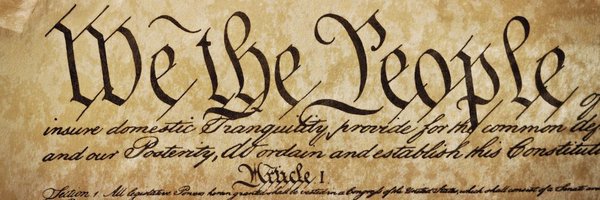 We the People of
insure domestic Tranquility, provide for the common
and our Posterity, do ordain and establish this
Article I
Section 1. All legislative Powers herein granted shall be vested in a Congress of the United States, which shall consist of a Senate and